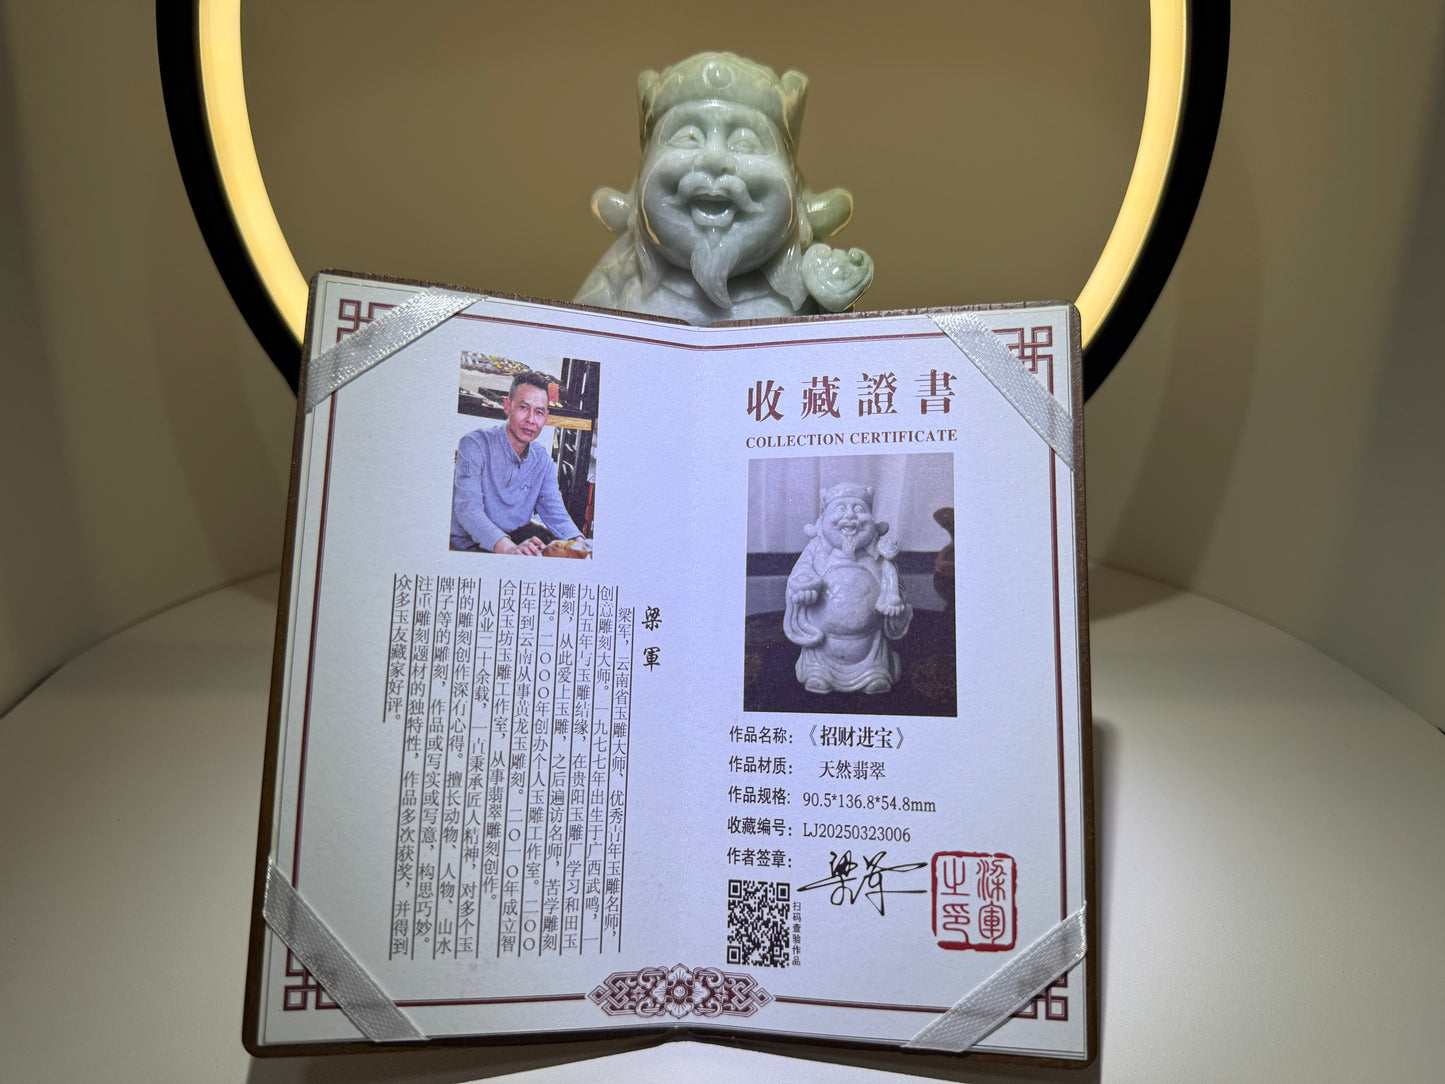 梁軍
梁军，云南省玉雕大师、优秀青年玉雕名师，
创意雕刻大师。一九七七年出生于广西武鸣，一
九九五年与玉雕结缘，在贵阳玉雕厂学习和田玉
雕刻，从此爱上玉雕，之后遍访名师，苦学雕刻
技艺。二〇〇〇年创办个人玉雕工作室。二〇〇
五年到云南从事黄龙玉雕刻。二〇一〇年成立智
合攻玉坊玉雕工作室，从事翡翠雕刻创作。
从业二十余载，一直秉承匠人精神，对多个玉
种的雕刻创作深有心得。擅长动物、人物、山水
牌子等的雕刻，作品或写实或写意，构思巧妙。
注重雕刻题材的独特性，作品多次获奖，并得到
众多玉友藏家好评。
收藏證書
COLLECTION CERTIFICATE
作品名称：《招财进宝》
作品材质： 天然翡翠
作品规格: 90.5*136.8*54.8mm
收藏编号：LJ20250323006
作者签章：梁军
梁軍之印
扫码查验作品